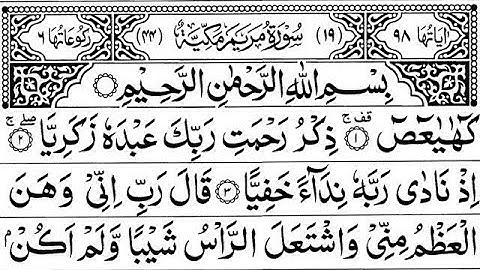 اٰيَاتُهَا ٩٨ (١٩) سُوْرَةُ مَرْيَمَ مَكِّيَّةٌ (٤٤) رُكُوْعَاتُهَا ٦
بِسْمِ اللّٰهِ الرَّحْمٰنِ الرَّحِيْمِ
كٓهٰيٰعٓصٓ ۝١ قف ج ذِكْرُ رَحْمَتِ رَبِّكَ عَبْدَهٗ زَكَرِيَّا ۝٢ صلے ج
اِذْ نَادٰى رَبَّهٗ نِدَآءً خَفِيًّا ۝٣ قَالَ رَبِّ اِنِّىْ وَهَنَ
الْعَظْمُ مِنِّىْ وَاشْتَعَلَ الرَّاْسُ شَيْبًا وَّلَمْ اَكُنْۢ